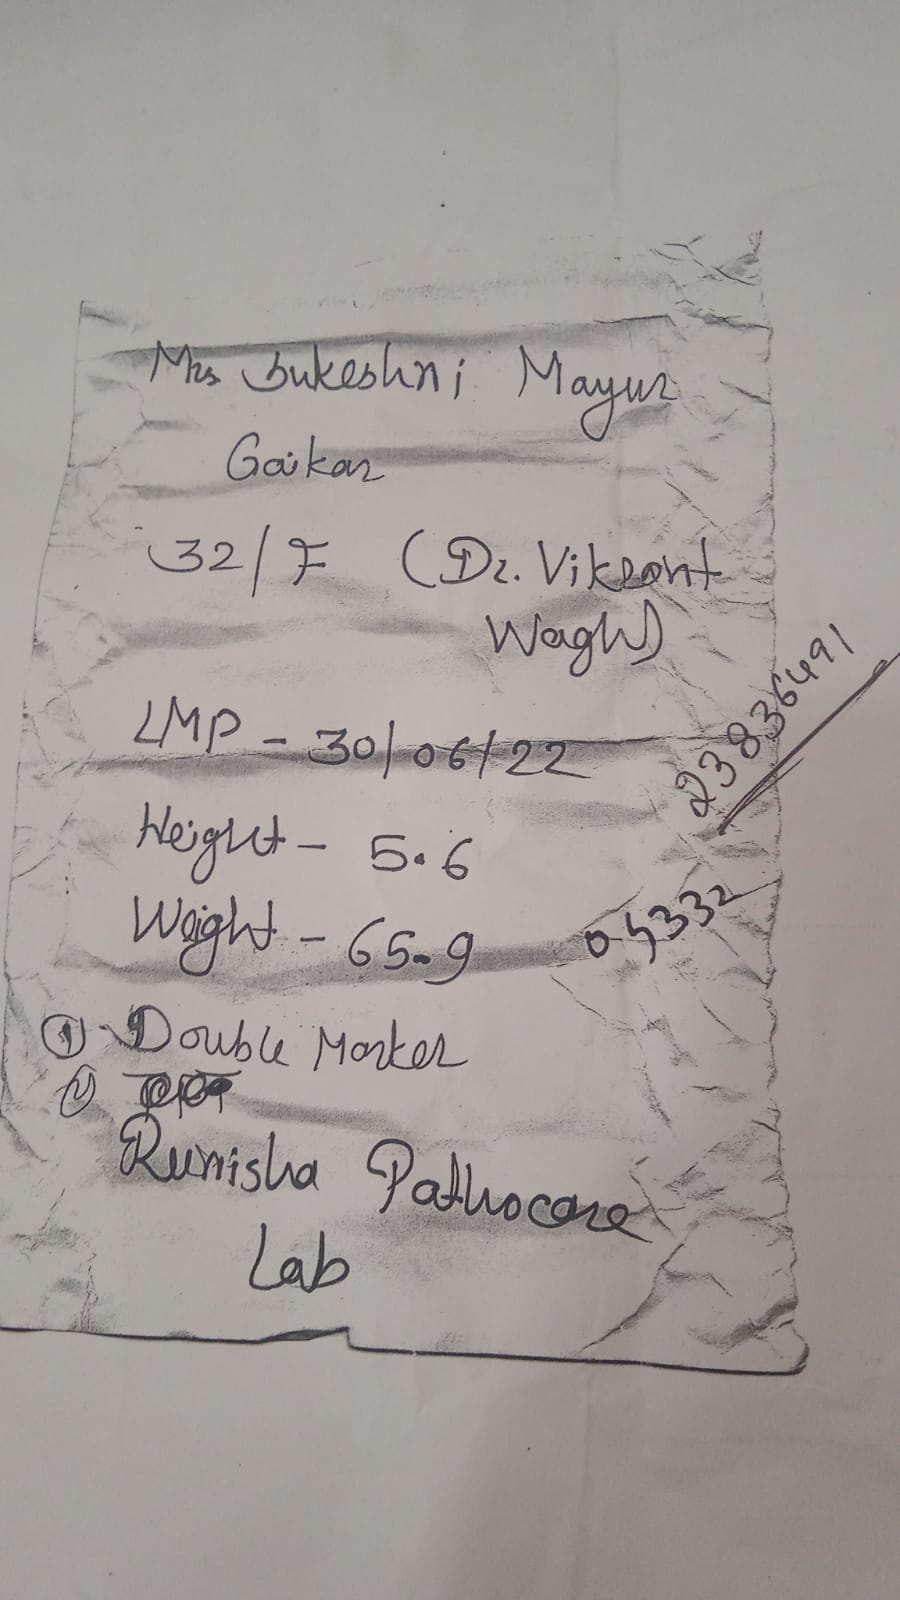 Mrs Sukeshni Mayur
Gaikar
32/F (Dr. Vikrant
Wagh)
LMP - 30/06/22
23836491
Height - 5.6
Weight - 65.9
05332
① Double Marker
②
Runisha Pathocare
Lab